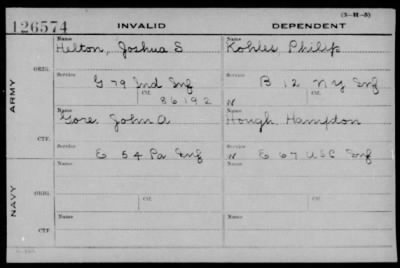 (3-H-5)
126574 INVALID DEPENDENT
Name Name
Helton, Joshua S Kohler Philip
ORIG.
Service Service
G 79 Ind Inf B 12 NY Inf
Ctf. Ctf.
86192 W
ARMY
Name Name
Gore, John A Hough Hampdon
CTF.
Service Service
E 54 Pa Inf W E 67 USC Inf
Name Name
NAVY
ORIG.
Ctf. Ctf.
Name Name
CTF.